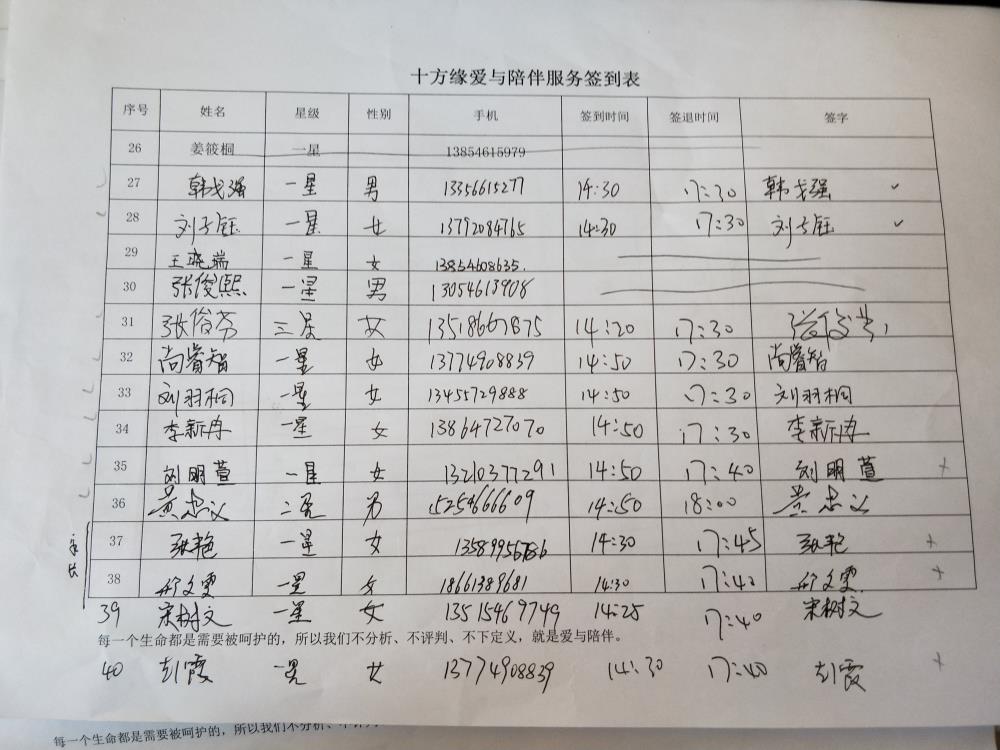 十方缘爱与陪伴服务签到表
序号 姓名 星级 性别 手机 签到时间 签退时间 签字
26 姜筱桐 一星 13854615979
27 韩戈强 一星 男 13356615277 14:30 17:30 韩戈强
28 刘子钰 一星 女 13792084765 14:30 17:30 刘子钰
29 王晓瑞 一星 女 13854608635.
30 张俊熙 一星 男 13054613908
31 张俊芳 三星 女 13518667875 14:20 17:30
32 尚睿智 一星 女 13774908839 14:50 17:30 尚睿智
33 刘羽桐 一星 女 13455729888 14:50 17:30 刘羽桐
34 李新冉 一星 女 13864727070 14:50 17:30 李新冉
35 刘明萱 一星 女 13210377291 14:50 17:40 刘明萱
36 黄忠义 二星 男 15254666609 14:50 18:00 黄忠义
家长
37 张艳 一星 女 14:30 17:45 张艳
38 一星 女 18661389681 14:30 17:40
39 宋树文 一星 女 13515469749 14:25 17:40 宋树文
每一个生命都是需要被呵护的，所以我们不分析、不评判、不下定义，就是爱与陪伴。
40 彭霞 一星 女 13774908839 14:30 17:40 彭霞
每一个生命都是需要被呵护的，所以我们不分析、不评判